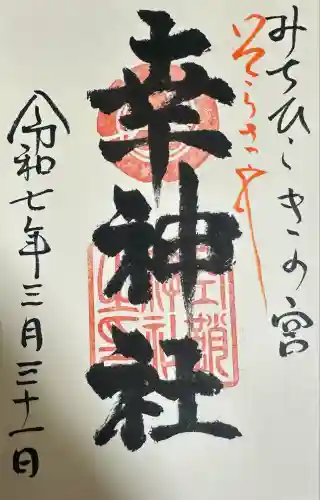 みちひらきの宮
幸神社
令和七年三月三十一日